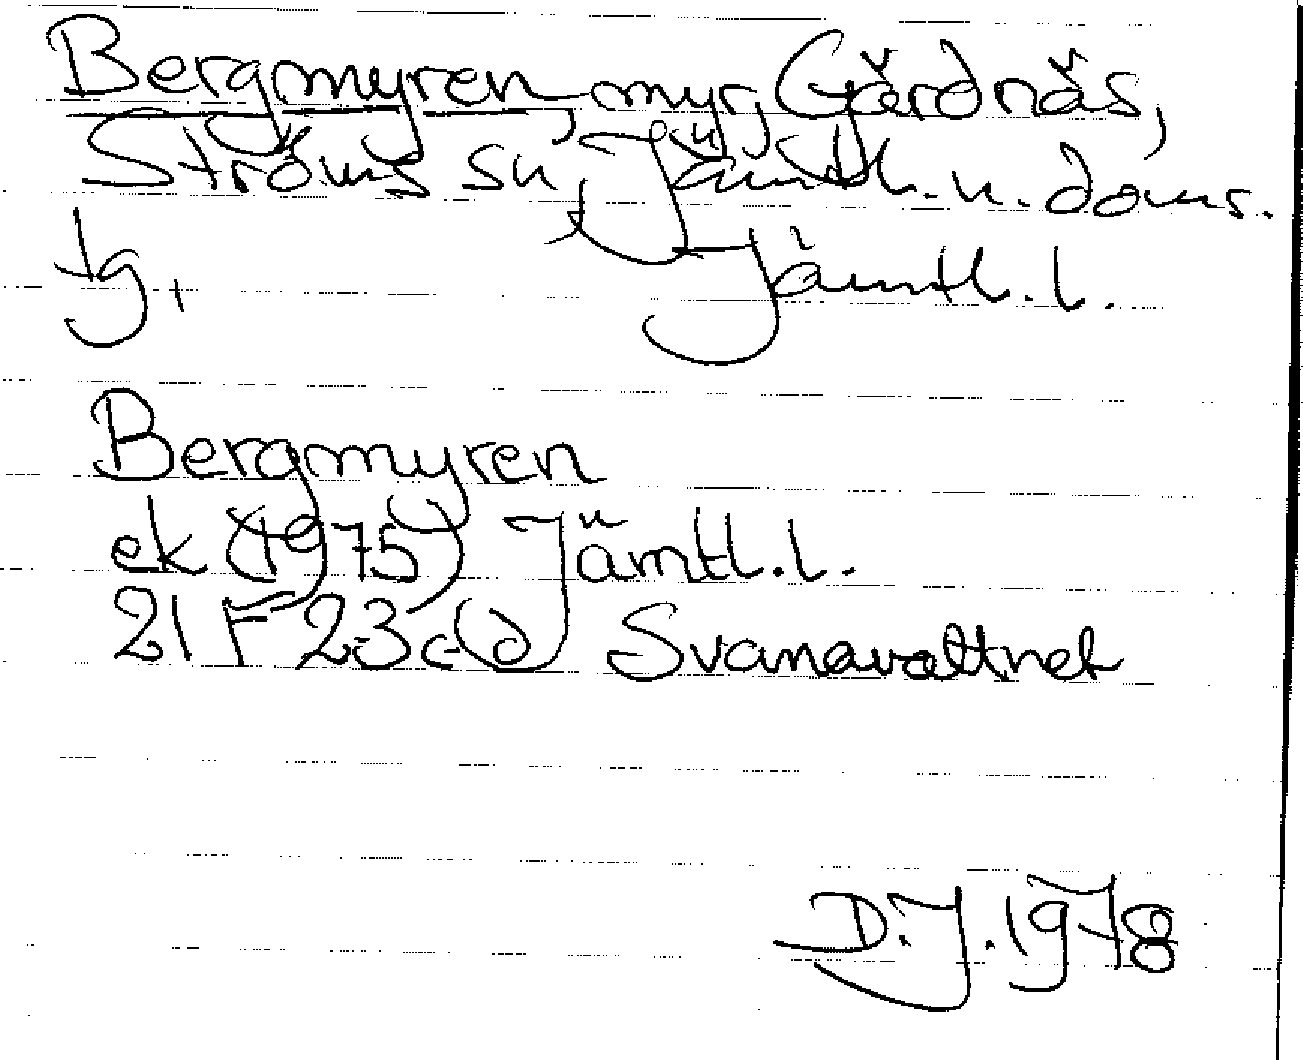 Bergmyren, myr, Gärdnäs,
Ströms sn, Jämtl. n. doms.
tg, Jämtl. l.
Bergmyren
ek (1975) Jämtl. l.
21 F 23 cd Svanavattnet
D. J. 1978